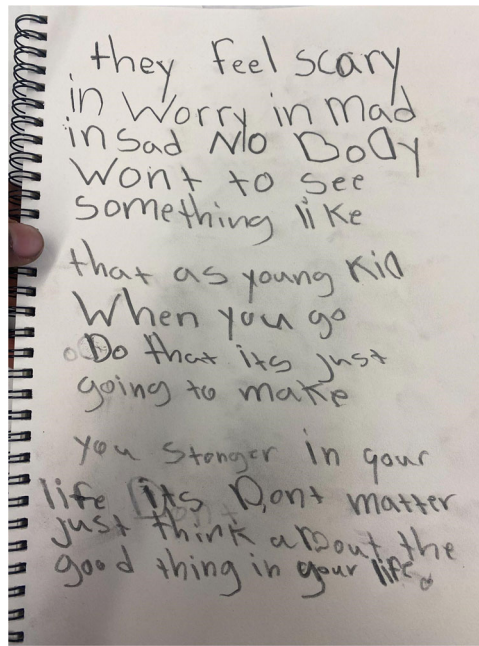 they feel scary
in Worry in mad
in sad NO BoDy
Wont to see
something like
that as young KiD
When you go
Do that its just
going to make
you stonger in your
life its Dont matter
just think about the
good thing in your life.